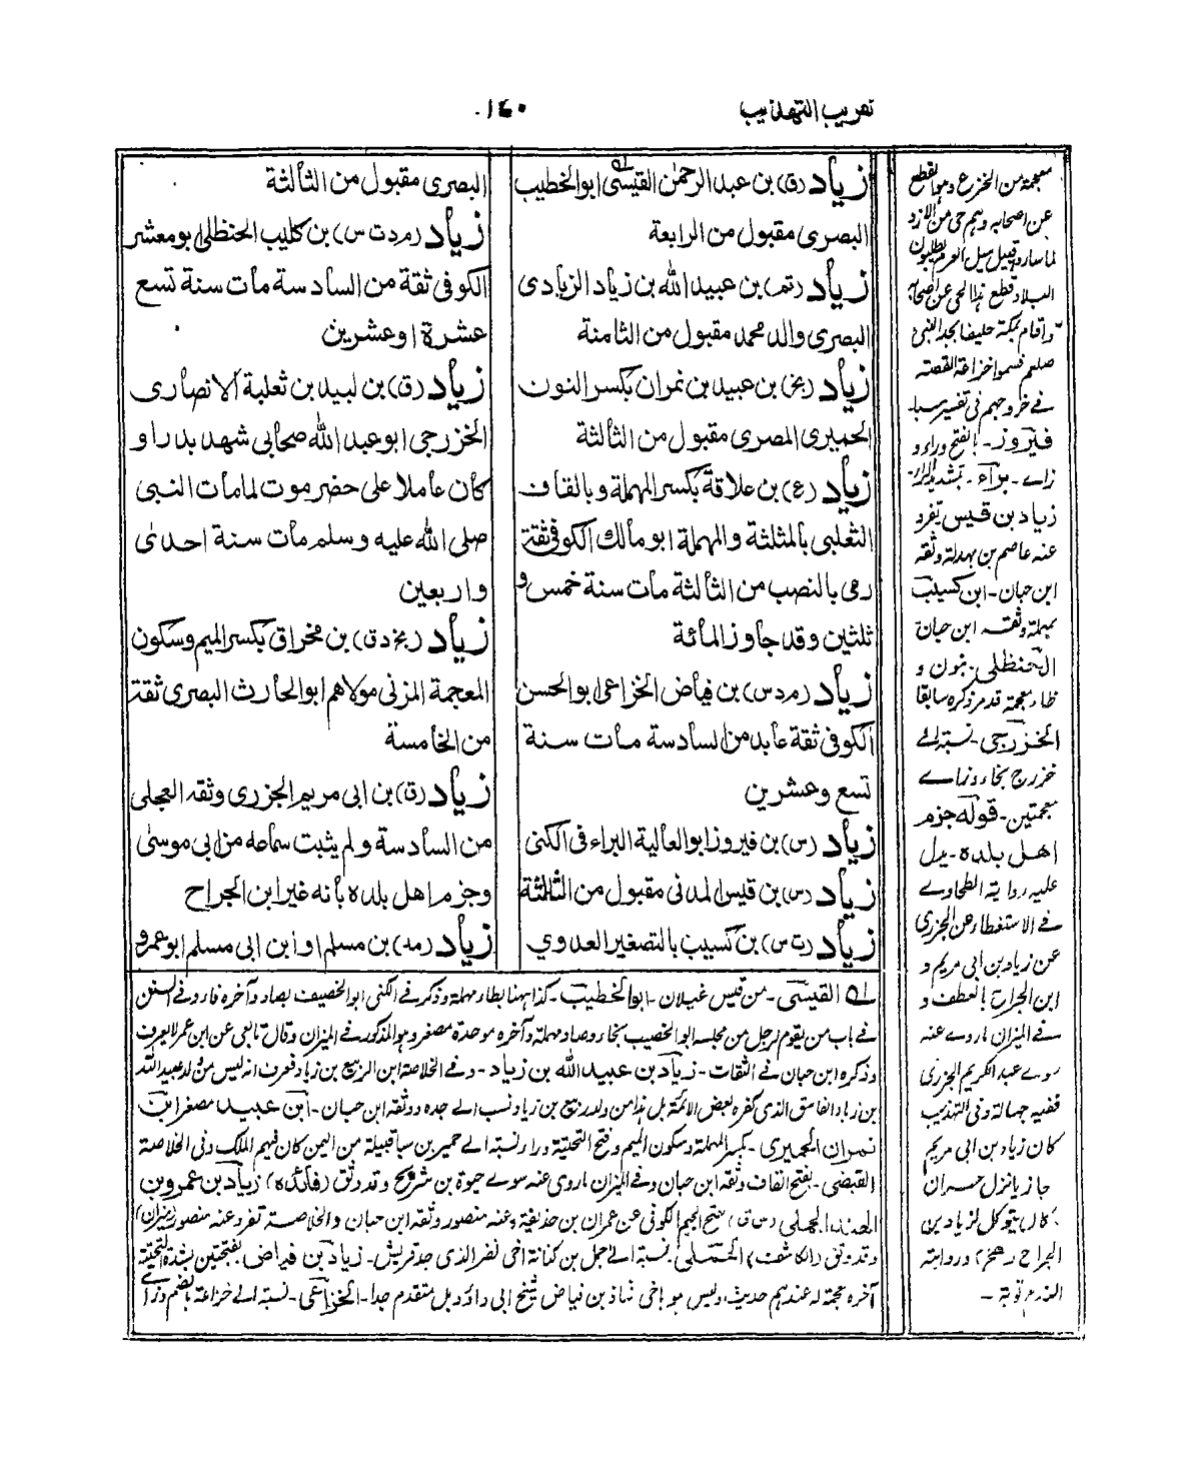 تقريب التهذيب
١٤٠
زياد (ق) بن عبد الرحمن القيسي ابو الخطيب
البصرى مقبول من الرابعة
زياد (تم) بن عبيد الله بن زياد الزيادى
البصرى والد محمد مقبول من الثامنة
زياد (بخ) بن عبيد بن نمران بكسر النون
الحميرى المصرى مقبول من الثالثة
زياد (ع) بن علاقة بكسر المهملة وبالقاف
الثعلبى بالمثلثة والمهملة ابو مالك الكوفى ثقة
رمى بالنصب من الثالثة مات سنة خمس و
ثلثين وقد جاوز المائة
زياد (م د س) بن فياض الخزاعى ابو الحسن
الكوفى ثقة عابد من السادسة مات سنة
تسع وعشرين
زياد (س) بن فيروز ابو العالية البراء فى الكنى
زياد (س) بن قيس المدنى مقبول من الثالثة
زياد (ت س) بن كسيب بالتصغير العدوي
البصرى مقبول من الثالثة
زياد (م د ت س) بن كليب الحنظلى ابو معشر
الكوفى ثقة من السادسة مات سنة تسع
عشرة او عشرين
زياد (ق) بن لبيد بن ثعلبة الانصارى
الخزرجى ابو عبد الله صحابى شهد بدرا و
كان عاملا على حضرموت لما مات النبى
صلى الله عليه وسلم مات سنة احدى
واربعين
زياد (بخ د ق) بن مخراق بكسر الميم وسكون
المعجمة المزنى مولاهم ابو الحارث البصرى ثقة
من الخامسة
زياد (ق) بن ابى مريم الجزرى وثقه العجلى
من السادسة ولم يثبت سماعه من ابى موسى
وجزم اهل بلده بأنه غير ابن الجراح
زياد (مد) بن مسلم او ابن ابى مسلم ابو عمرو
له القيسى - من قيس غيلان - ابو الخطيب - كذا ههنا بطاء مهملة وذكر فى الكنى ابو الخصيف بصاد وآخره فاء وفى السنن
فى باب من يقوم لرجل من مجلسه ابو الخصيب بخاء وصاد مهملة وآخره موحدة مصغر وهو المذكور فى الميزان وقال تابعى عن ابن عمر لا يعرف
وذكره ابن حبان فى الثقات - زياد بن عبيد الله بن زياد - وفى الخلاصة ابن الربيع بن زياد فعرف انه ليس من ولد عبيد الله
بن زياد الفاسق الذى كفره بعض الائمة بل هذا من ولد ربيع بن زياد نسب الى جده ووثقه ابن حبان - ابن عبيد مصغر ابن
نمران الحميرى - بكسر المهملة وسكون الميم وفتح التحتية وراء نسبة الى حمير بن سبا قبيلة من اليمن كان فيهم الملك وفى الخلاصة
القبضى - بفتح القاف وثقه ابن حبان وفى الميزان ما روى عنه سوى حيوة بن شريح وقد وثق (فائده) زياد بن عمرو بن
الهند الجملى (س ق) بفتح الجيم الكوفى عن عمران بن حذيفة وعنه منصور وثقه ابن حبان والخلاصة تفرد عنه منصور (ميزان)
وقد وثق (الكاشف) الجملى نسبة الى جمل بن كنانة اخى نضر الذى جد قريش - زياد بن فياض بفتحتين بشدة التحتية
آخره معجمة له عندهم حديث وليس هو باخى شاذ بن فياض شيخ ابى داؤد بل متقدم جدا - الخزاعى - نسبة الى خزاعة بضم وزاى
معجمة من الخزع وهو القطع
عن اصحابه وهم حى من الازد
لما ساروا قبيل سيل العرم يطلبون
البلاد قطع هذا الحى عن اصحابه
واقام بمكة حليفا بجد النبى
صلعم فسموا خزاعة القصة
فى خروجهم فى تفسير سبا
فيروز - بفتح وراء و
زاى - براء - بتشديد الراء -
زياد بن قيس تفرد
عنه عاصم بن بهدلة وثقه
ابن حبان - ابن كسيب
بمهملة وثقه ابن حبان
الحنظلى بنون و
ظاء معجمة قد مر ذكره سابقا
الخزرجى - نسبة الى
خزرج بخاء وزاى
معجمتين - قوله جزم
اهل بلده - يدل
عليه رواية الطحاوى
فى الاستغطاء عن الجزرى
عن زياد بن ابى مريم و
ابن الجراح بالعطف و
فى الميزان ما روى عنه
سوى عبد الكريم الجزرى
ففيه جهالة وفى التهذيب
كان زياد بن ابى مريم
جازيا نزل حران
كان يتوكل لزياد بن
الجراح وروايته
الندم توبة -